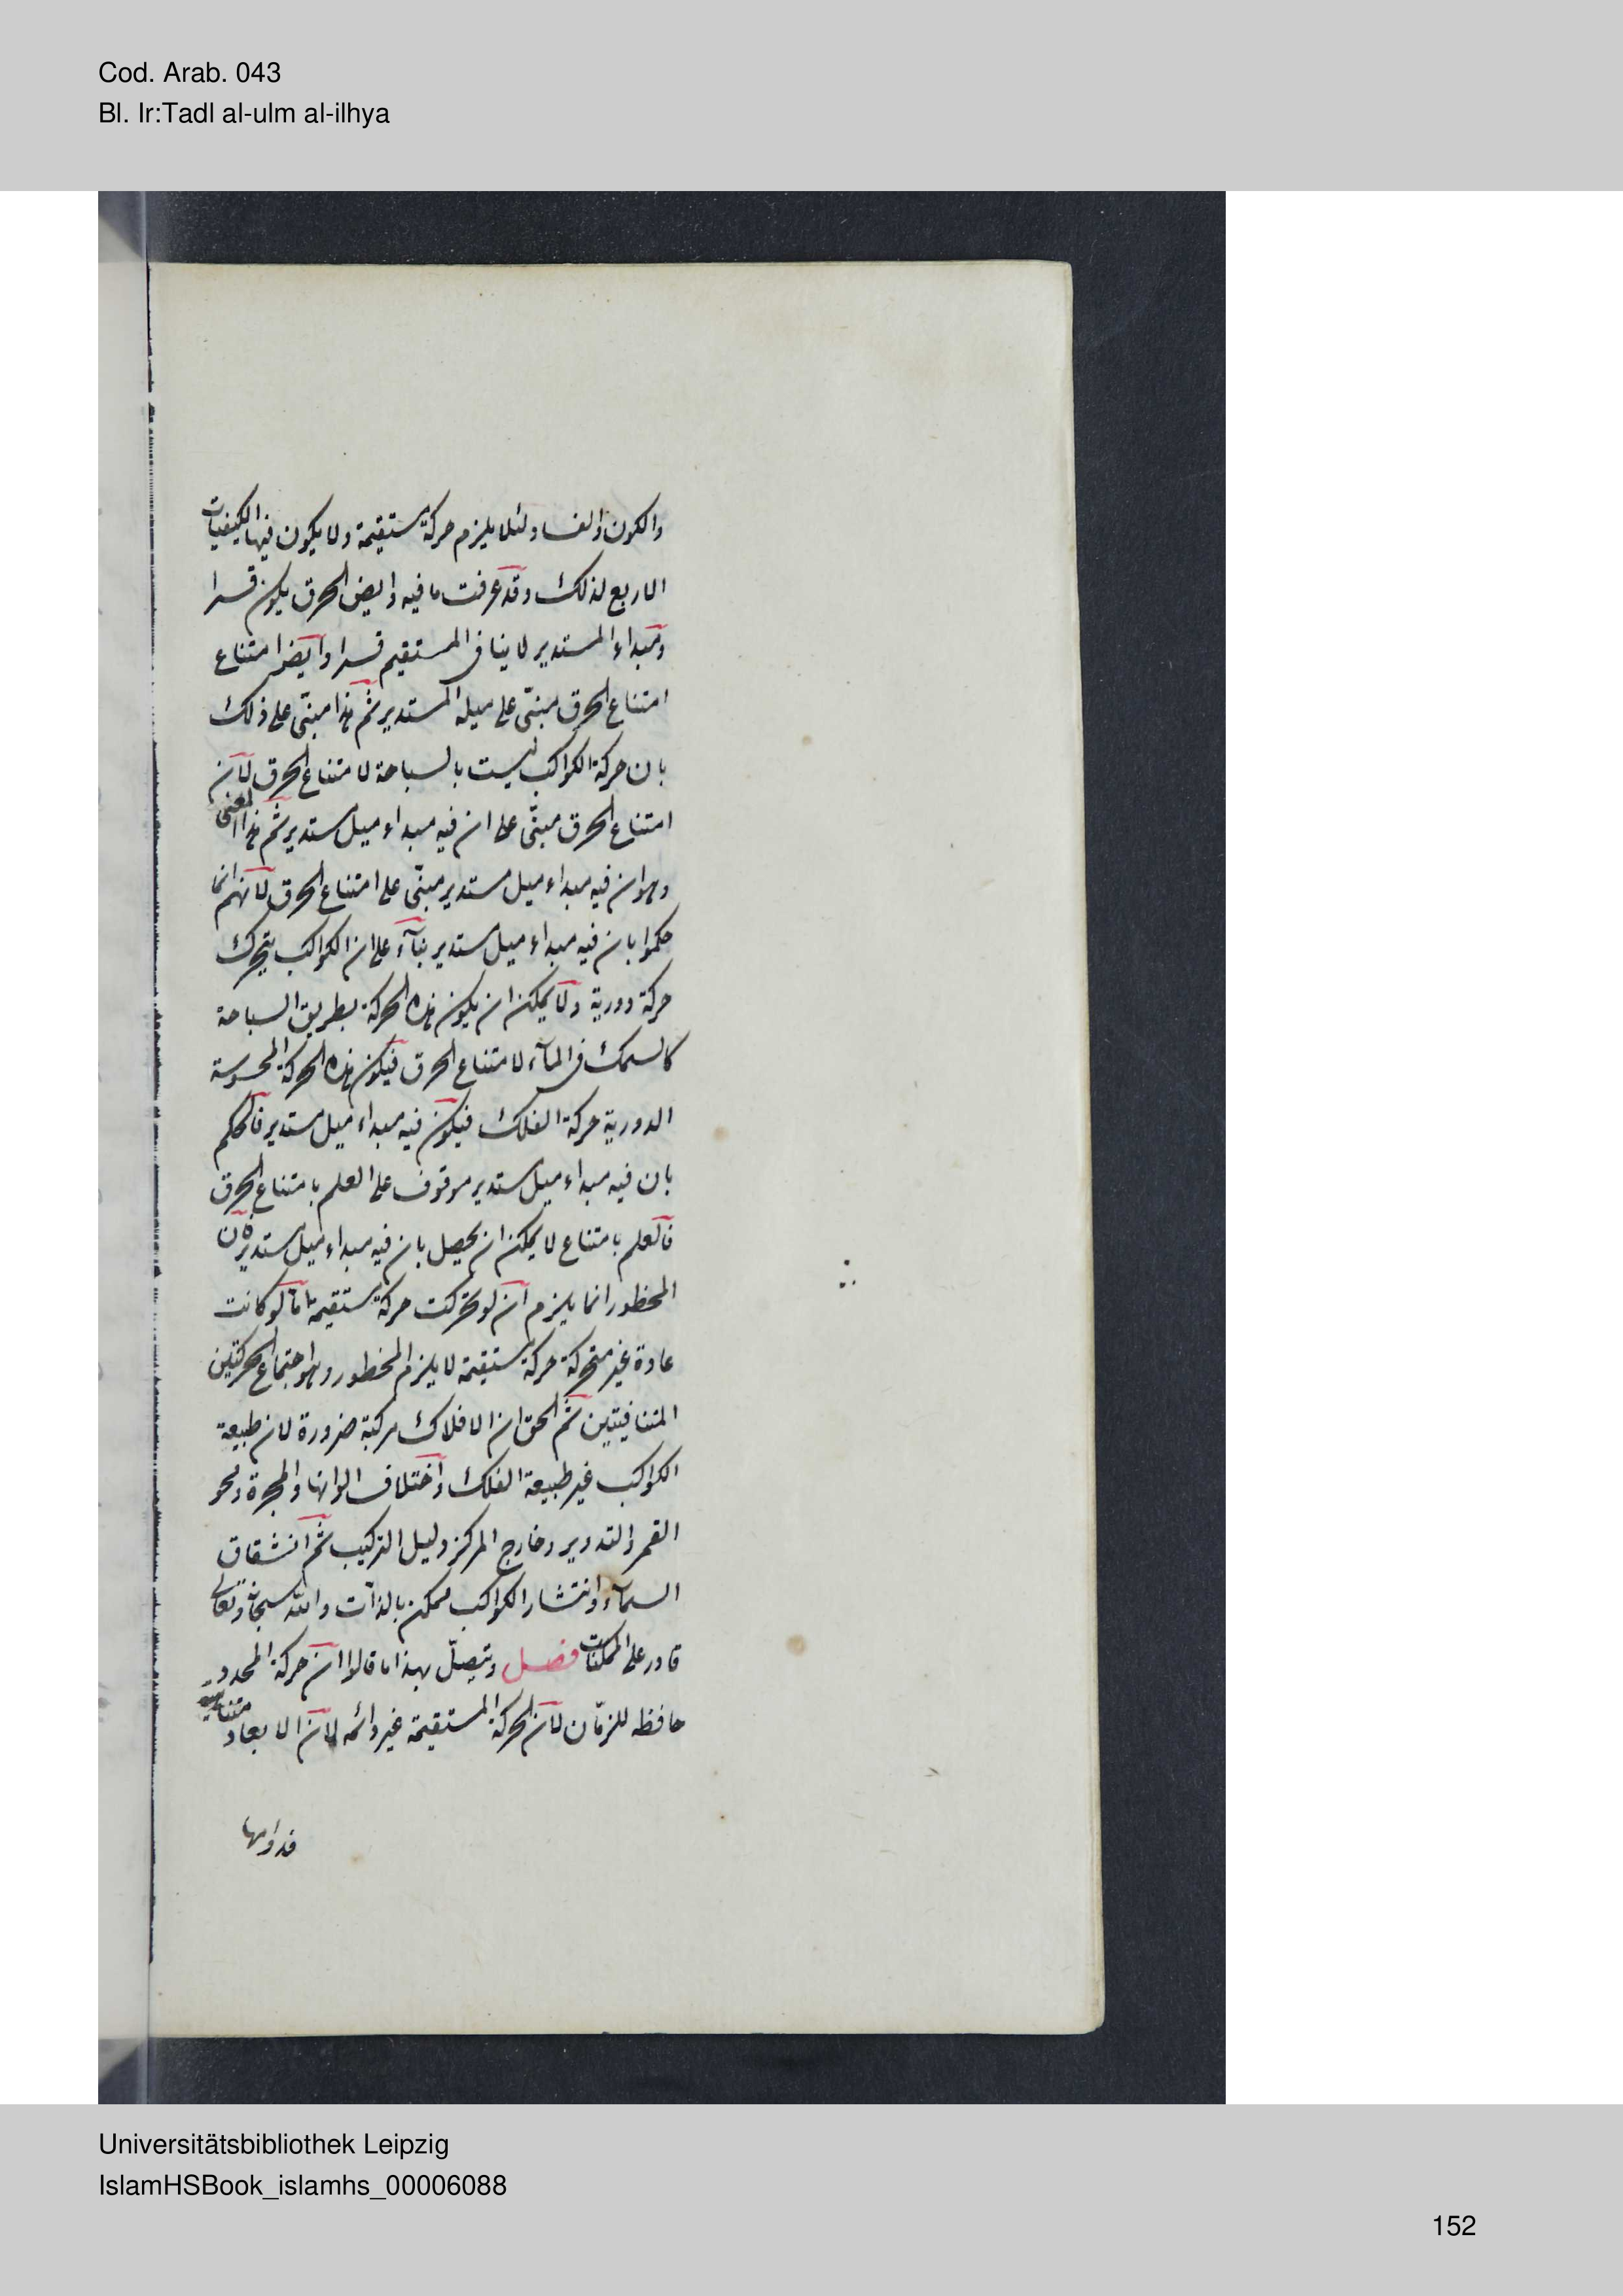 Cod. Arab. 043
Bl. Ir:Tadl al-ulm al-ilhya
والكون والفساد لئلا يلزم حركة مستقيمة ولا يكون فيها الكيفيات
الاربع لذلك وقد عرفت ما فيه وايض الخرق يكون قسرا
ومبداء المستدير لا ينافى المستقيم قسرا وايضا متناع
امتناع الخرق مبنى على ميله المستدير ثم هذا مبنى على ذلك
بان حركة الكواكب ليست بالسباحة لامتناع الخرق لان
امتناع الخرق مبنى على ان فيه مبداء ميل مستدير ثم هذا المعنى
وهو ان فيه مبداء ميل مستدير مبنى على امتناع الخرق لانهم انما
حكموا بان فيه مبداء ميل مستدير بناء على ان الكواكب يتحرك
حركة دورية ولا يمكن ان يكون هذه الحركة بطريق السباحة
كالسمك فى الماء لامتناع الخرق فيكون هذه الحركة المحسوسة
الدورية حركة الفلك فيكون فيه مبداء ميل مستدير فالحكم
بان فيه مبداء ميل مستدير موقوف على العلم بامتناع الخرق
فالعلم بامتناع لا يمكن ان يحصل بان فيه مبداء ميل مستدير لان
المحظور انما يلزم ان لو تحركت حركة مستقيمة اما لو كانت
عادة غير متحركة حركة مستقيمة لا يلزم المحظور وهو اجتماع الحركتين
المتنافيتين ثم الحق ان الافلاك مركبة ضرورة لان طبيعة
الكواكب غير طبيعة الفلك واختلاف الوانها والمجرة ومحو
القمر والتدوير وخارج المركز دليل التركيب ثم انشقاق
السماء وانتشار الكواكب ممكن بالذات والله سبحانه وتعالى
قادر على الممكنات فصل ويتصل بهذا ما قالوا ان حركة المحدد
حافظه للزمان لان الحركة المستقيمة غير دائمه لان الابعاد متناهية
فدوامها
Universitätsbibliothek Leipzig
IslamHSBook_islamhs_00006088
152